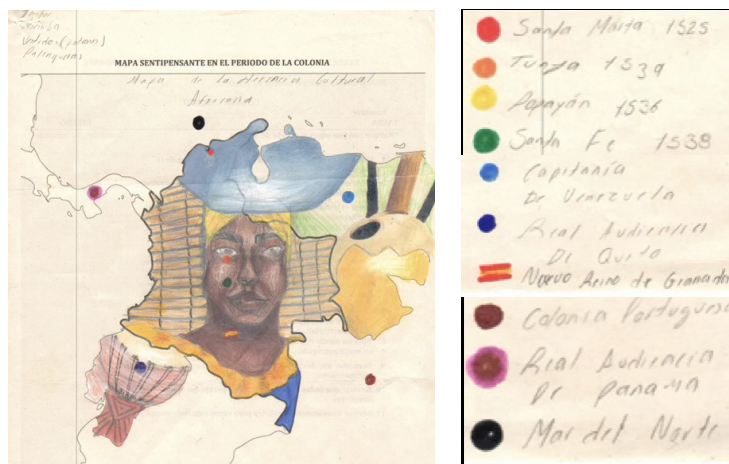 Marimba
Palenqueras
MAPA SENTIPENSANTE EN EL PERIODO DE LA COLONIA
Mapa de la Herencia Cultural
Africana
Santa Marta 1525
Tunja 1539
Popayán 1536
Santa Fe 1538
Capitanía
De Venezuela
Real Audiencia
De Quito
Nuevo Reino de Granada
Colonia Portuguesa
Real Audiencia
De panamá
Mar del Norte